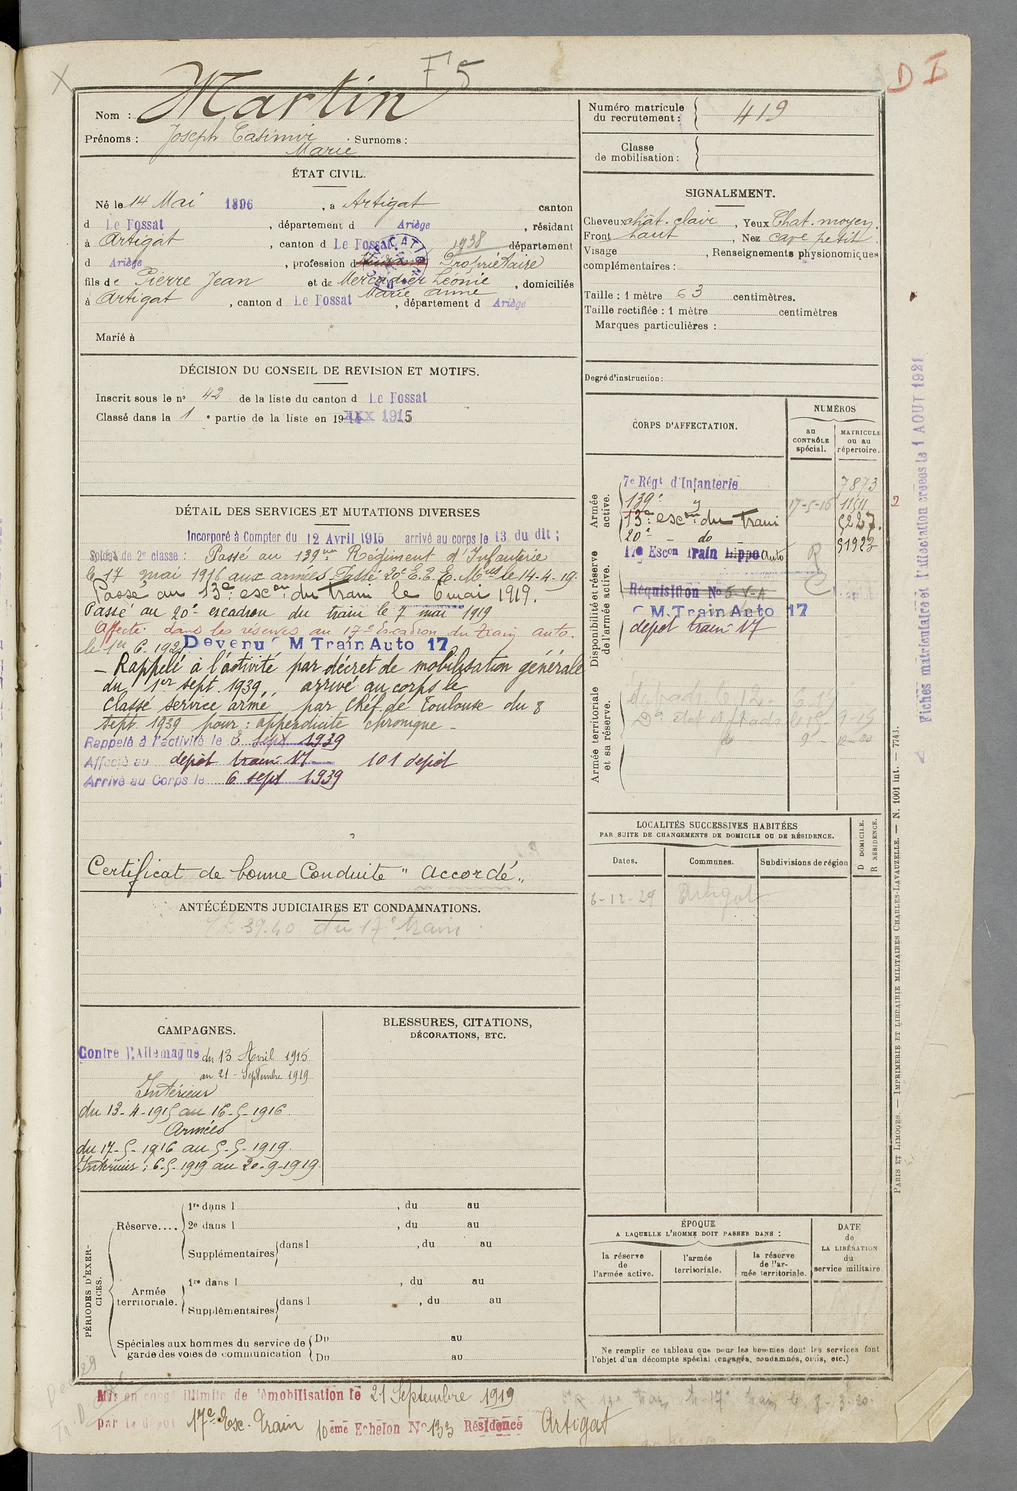 F 5
D I
X
Nom : Martin
Prénoms : Joseph Casimir Surnoms :
Marie
ÉTAT CIVIL.
Né le 14 Mai 1896, à Artigat canton
d Le Fossat, département d Ariège, résidant
à Artigat, canton d Le Fossat 1938 département
d Ariège, profession d Propriétaire
fils de Pierre Jean et de Mercadier Léonie, domiciliés
Marie Anne
à Artigat, canton d Le Fossat, département d Ariège
Marié à
DÉCISION DU CONSEIL DE REVISION ET MOTIFS.
Inscrit sous le n° 42 de la liste du canton d Le Fossat
Classé dans la 1e partie de la liste en 19 1915
DÉTAIL DES SERVICES ET MUTATIONS DIVERSES
Incorporé à Compter du 12 Avril 1915 arrivé au corps le 13 du dit ;
Soldat de 2e classe : Passé au 139me Régiment d'Infanterie
le 17 mai 1916 aux armées Passé 20e E.T.E.Mres le 14-4-19.
Passé au 13e escon du train le 6 mai 1919.
Passé au 20e escadron du train le 7 mai 1919
Affecté dans les réserves au 17e Escadron du train auto.
le 1er 6. 192 Devenu C M Train Auto 17
— Rappelé à l'activité par décret de mobilisation générale
du 1er sept. 1939, arrivé au corps le
Classé service armé par Chef. de Toulouse du 8
sept. 1939 pour : appendicite chronique -
Rappelé à l'activité le 3 sept 1939
Affecté au depôt train 17 101 depôt
Arrivé au Corps le 6 sept 1939
Certificat de bonne Conduite " accordé "
ANTÉCÉDENTS JUDICIAIRES ET CONDAMNATIONS.
39-40 du 17e train.
CAMPAGNES.
Contre l'Allemagne du 13 Avril 1915
au 21 - Septembre 1919
Intérieur
du 13-4-1915 au 16-5-1916
Armées
du 17-5-1916 au 5-5-1919.
Intérieur : 6-5-1919 au 20-9-1919.
BLESSURES, CITATIONS,
DÉCORATIONS, ETC.
PÉRIODES D'EXERCICES.
Réserve....
1re dans l , du au
2e dans l , du au
Supplémentaires dans l , du au
Armée territoriale.
1re dans l , du au
Supplémentaires dans l , du au
Spéciales aux hommes du service de garde des voies de communication
Du au
Du au
Mis en congé illimité de démobilisation le 21 Septembre 1919
par le dépôt 17e Esc. Train 10ème Echelon N° 133 Résidence Artigat
Numéro matricule du recrutement : 419
Classe de mobilisation :
SIGNALEMENT.
Cheveux chât. clair, Yeux Chat. moyen
Front haut, Nez cave petit
Visage , Renseignements physionomiques
complémentaires :
Taille : 1 mètre 63 centimètres.
Taille rectifiée : 1 mètre centimètres
Marques particulières :
Degré d'instruction :
CORPS D'AFFECTATION.
NUMÉROS
au CONTRÔLE spécial.
MATRICULE ou au répertoire.
Armée active.
7e Régt d'Infanterie 7873
139e 17-5-16 11511 2
13e escon du train 5227.
20e - do 51923
Disponibilité et réserve de l'armée active.
17e Escon Train Hippo Auto R
Réquisition N° 5-V-A
C M. Train Auto 17
depôt train 17
Armée territoriale et sa réserve.
LOCALITÉS SUCCESSIVES HABITÉES
PAR SUITE DE CHANGEMENTS DE DOMICILE OU DE RÉSIDENCE.
Dates. Communes. Subdivisions de région
D DOMICILE.
R RÉSIDENCE.
6-12-29 Artigat
ÉPOQUE
A LAQUELLE L'HOMME DOIT PASSER DANS :
la réserve de l'armée active.
l'armée territoriale.
la réserve de l'armée territoriale.
DATE de LA LIBÉRATION du service militaire
Ne remplir ce tableau que pour les hommes dont les services font
l'objet d'un décompte spécial (engagés, condamnés, omis, etc.)
PARIS ET LIMOGES. — IMPRIMERIE ET LIBRAIRIE MILITAIRES CHARLES-LAVAUZELLE. — N. 1001 int. — 7743.
Fiches matriculaire et l'affectation créées le 1 AOUT 1921